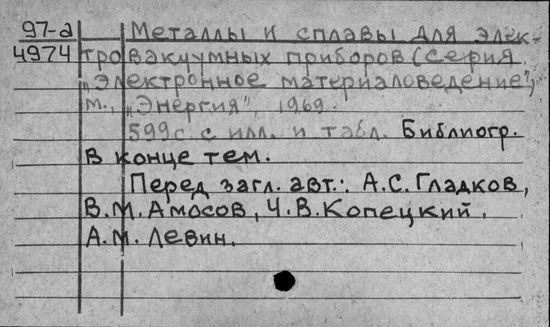 97-а Металлы и сплавы для элек-
4974 тровакуумных приборов (серия
„Электронное материаловедение",
М., „Энергия", 1969.
599с. с илл. и табл. Библиогр.
в конце тем.
Перед загл. авт.: А.С. Гладков,
В.М. Амосов, Ч.В. Копецкий,
А.М. Левин.